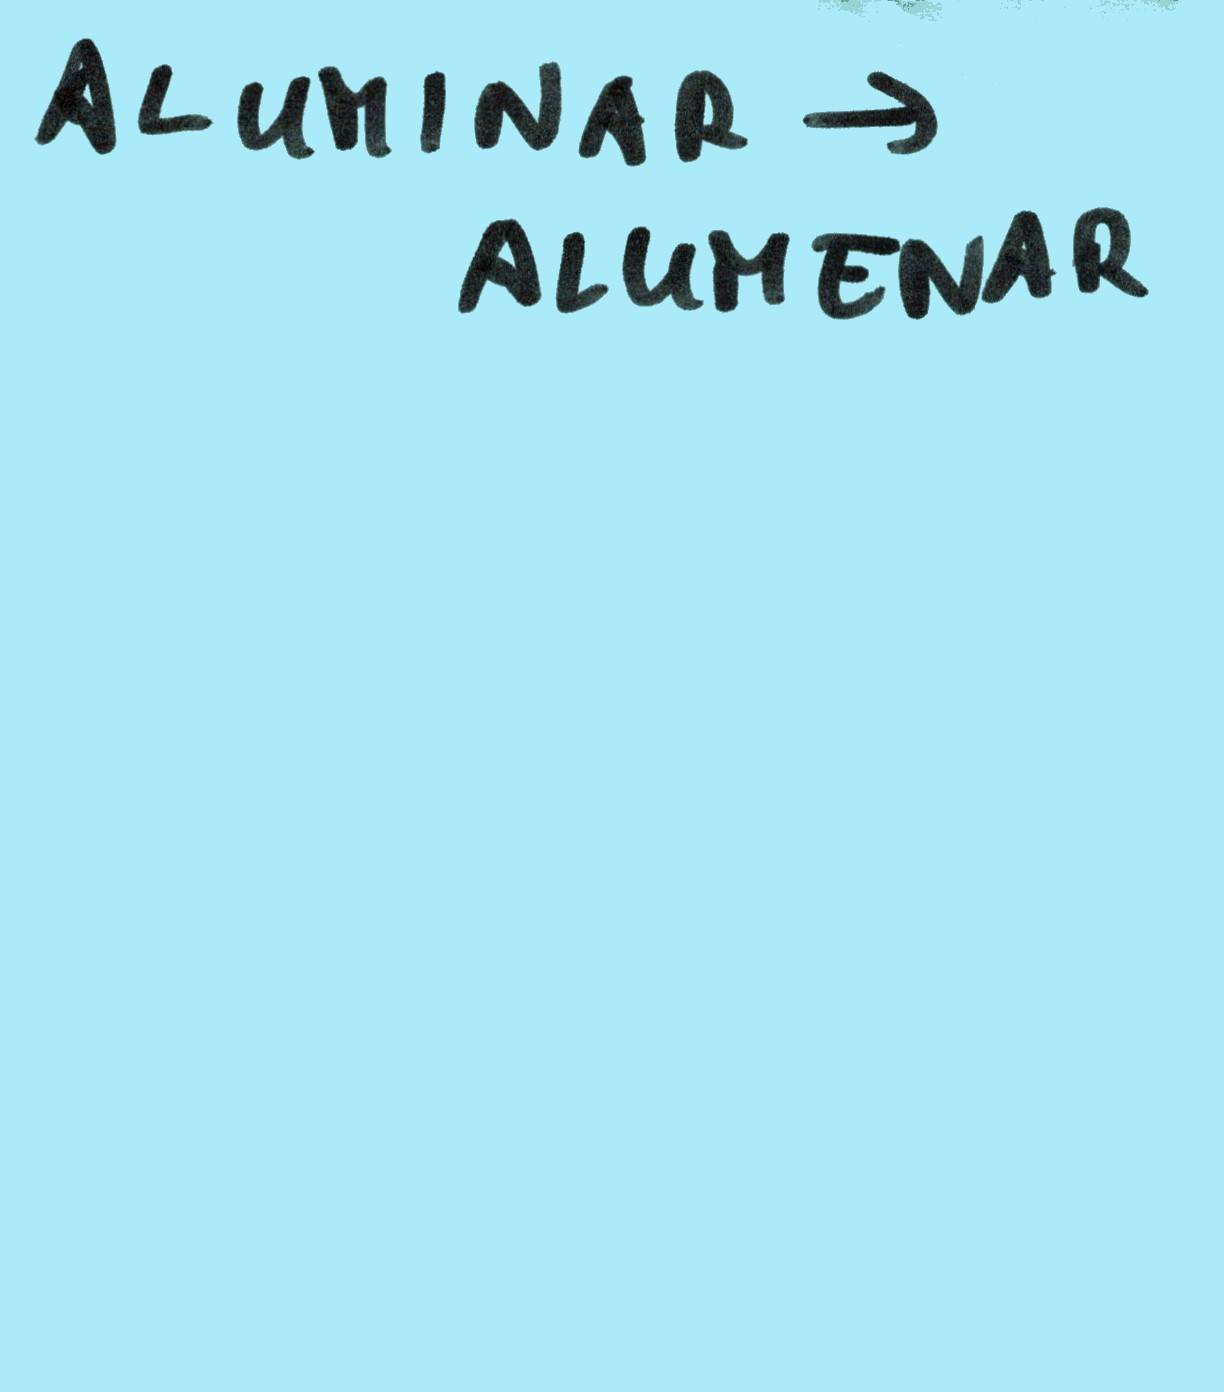 ALUMINAR →
ALUMENAR